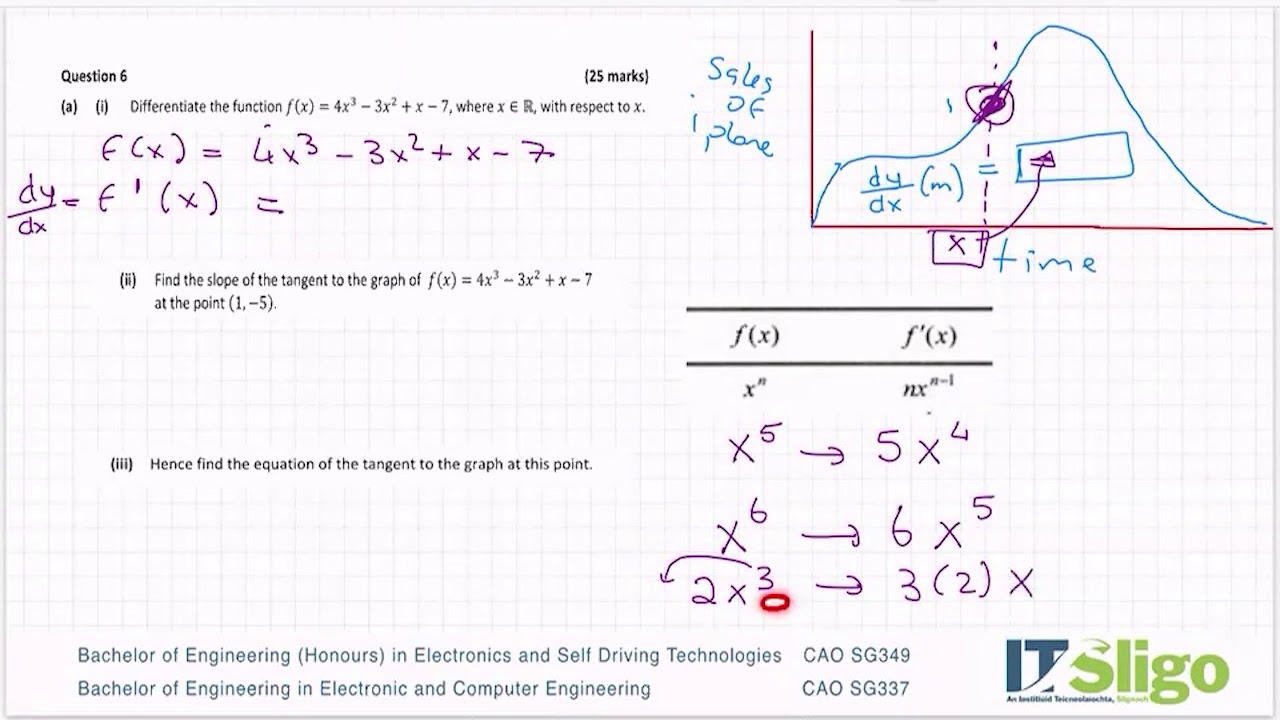 Question 6 (25 marks)
(a) (i) Differentiate the function f(x) = 4x³ − 3x² + x − 7, where x ∈ ℝ, with respect to x.
f(x) = 4x³ − 3x² + x − 7
dy/dx = f'(x) =
(ii) Find the slope of the tangent to the graph of f(x) = 4x³ − 3x² + x − 7
at the point (1, −5).
(iii) Hence find the equation of the tangent to the graph at this point.
Sales
OF
plane
dy/dx (m) =
x
time
f(x) f'(x)
xⁿ nxⁿ⁻¹
x⁵ → 5x⁴
x⁶ → 6x⁵
2x³ → 3(2)x
Bachelor of Engineering (Honours) in Electronics and Self Driving Technologies CAO SG349
Bachelor of Engineering in Electronic and Computer Engineering CAO SG337
IT Sligo
An Institiúid Teicneolaíochta, Sligeach